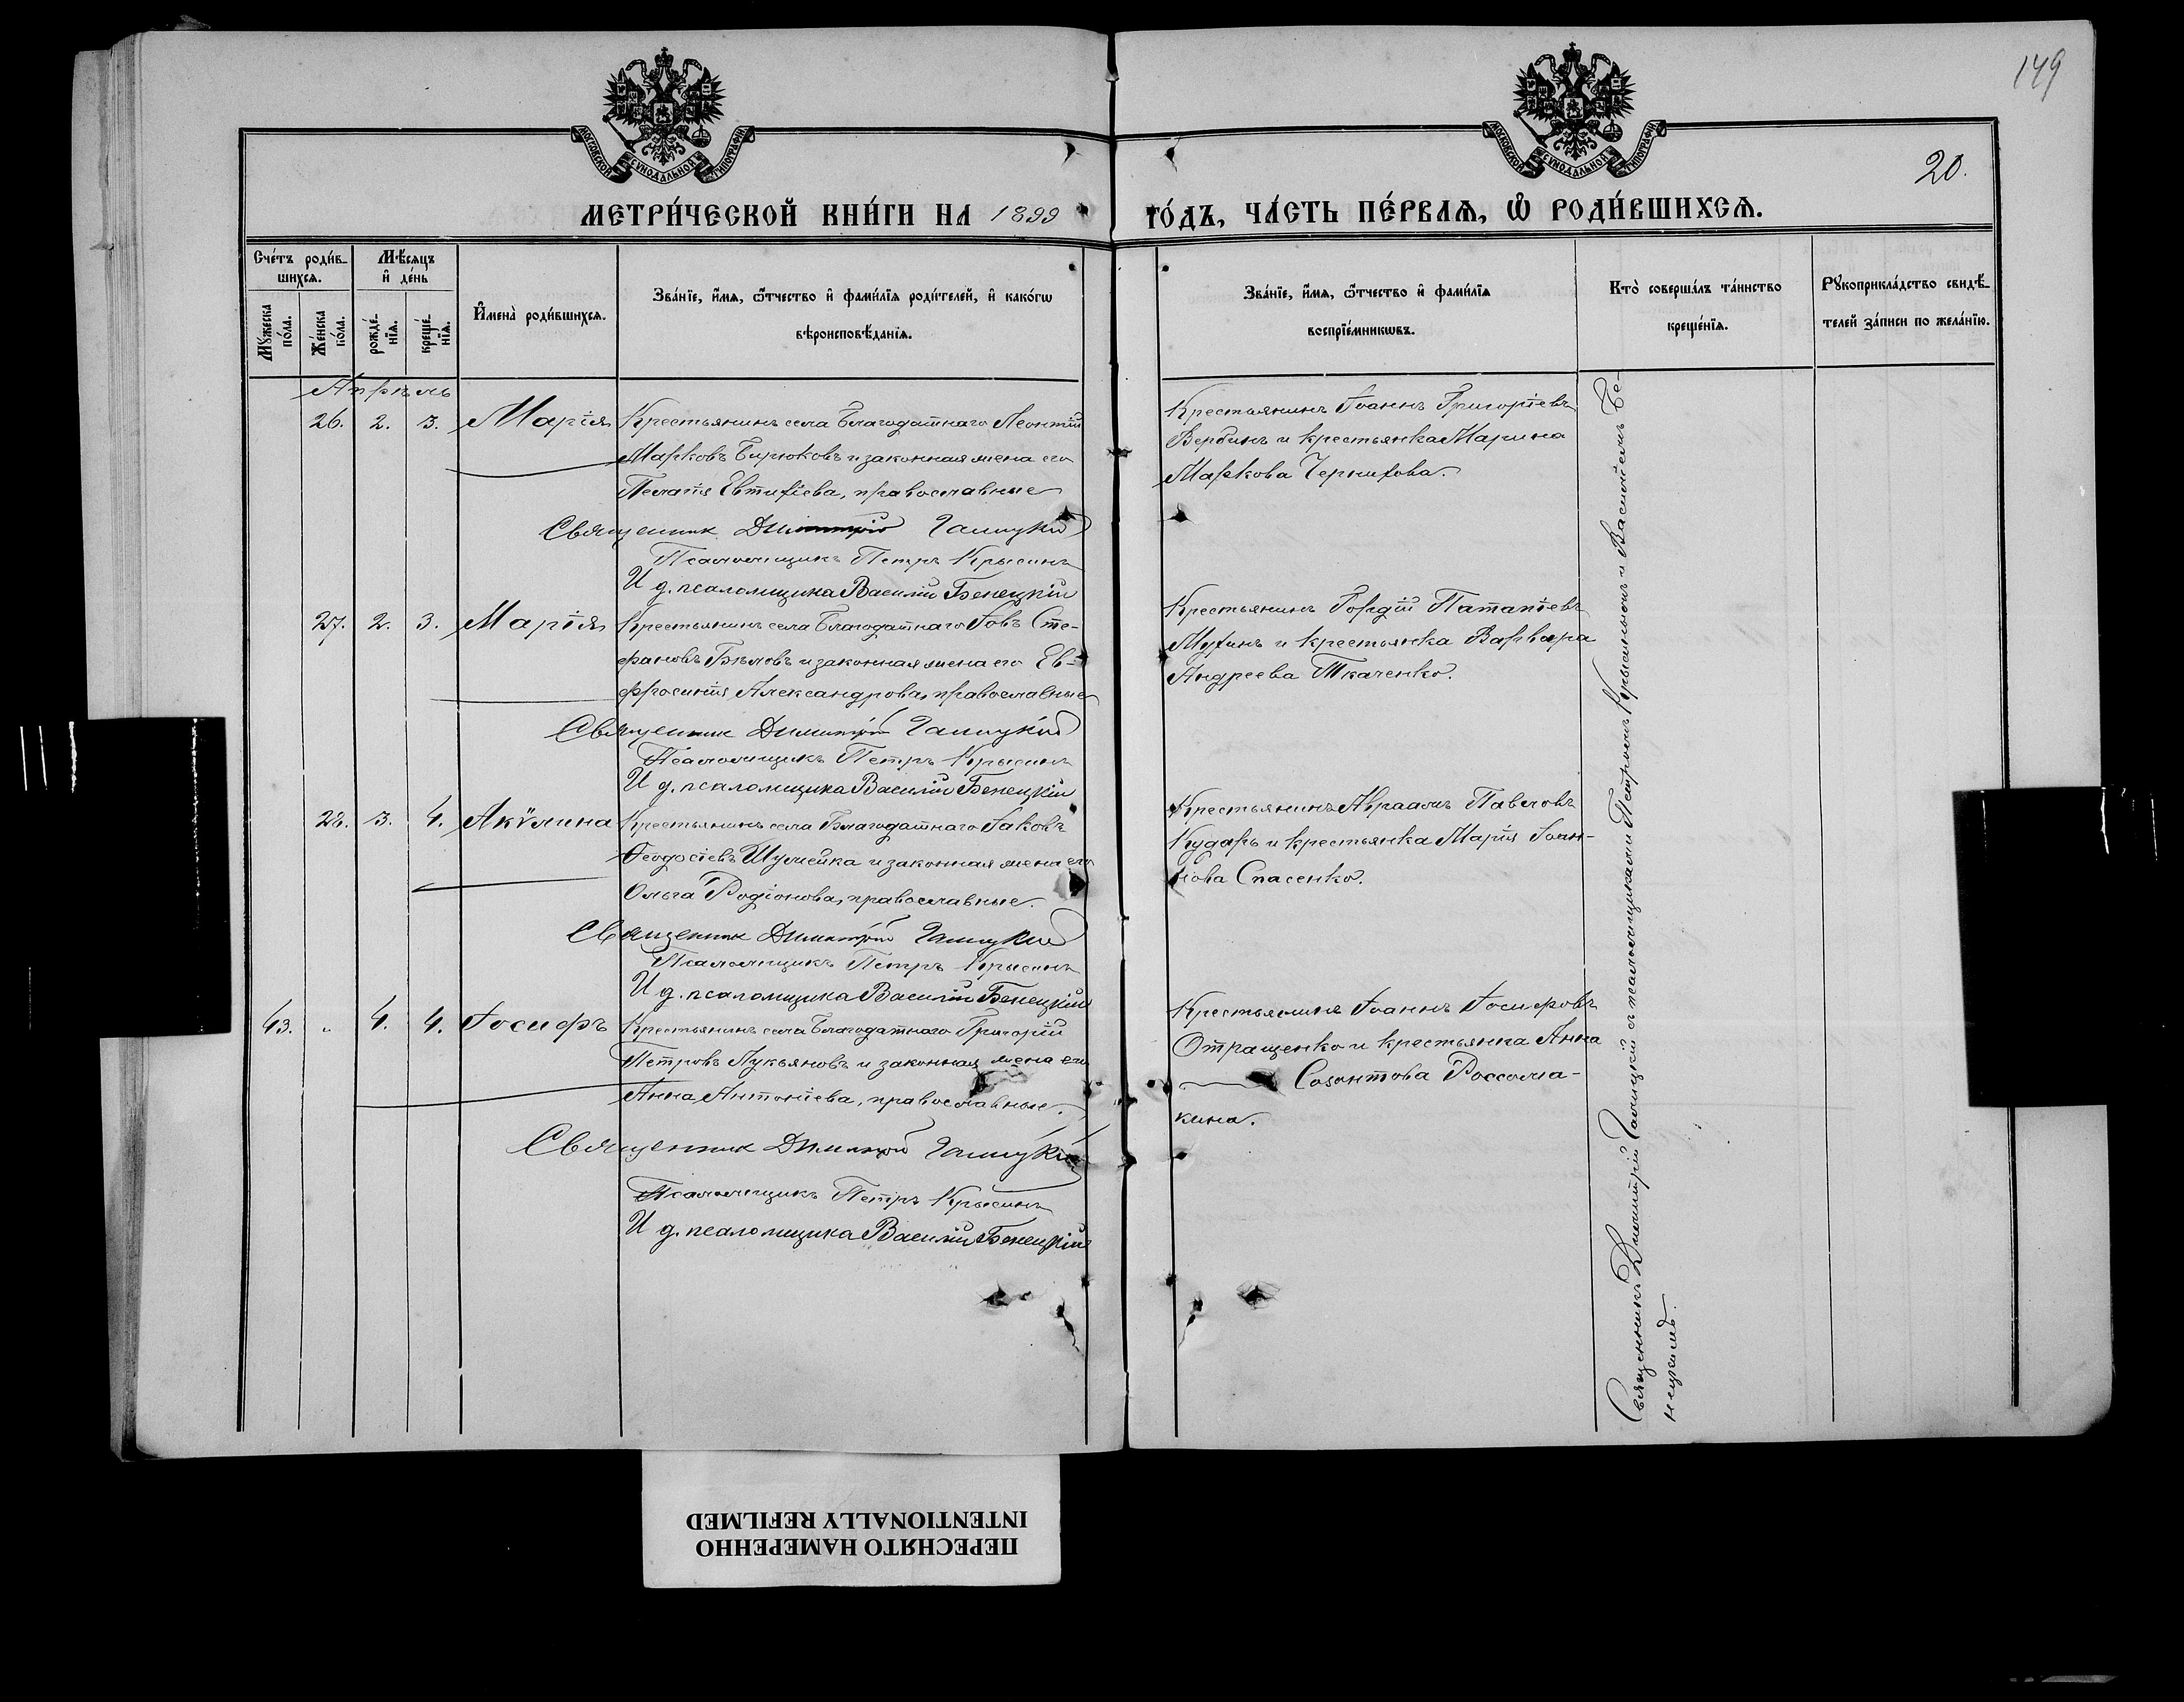 149
МОСКОВСКОЙ СѴНОДАЛЬНОЙ ТИПОГРАФІИ
МОСКОВСКОЙ СѴНОДАЛЬНОЙ ТИПОГРАФІИ
20.
МЕТРИ́ЧЕСКОЙ КНИ́ГИ НА 1899 ГО́ДЪ, ЧА́СТЬ ПЕ́РВАѦ, Ѽ РОДИ́ВШИХСѦ.
Сче́тъ роди́в-
шихсѧ.
Мꙋжеска по́ла.
Же́нска по́ла.
Мѣ́сѧцъ
и҆ де́нь
рожде́-
нїѧ.
креще́-
нїѧ.
И҆мена̀ роди́вшихсѧ.
Зва́нїе, и҆́мѧ, ѻ҆́тчество и҆ фами́лїѧ роди́телей, и҆ како́гѡ
вѣроисповѣ́данїѧ.
Зва́нїе, и҆́мѧ, ѻ҆́тчество и҆ фами́лїѧ
воспрїе́мникѡвъ.
Кто̀ соверша́лъ та́инство
креще́нїѧ.
Рꙋкоприкла́дство свидѣ́-
телей за́писи по жела́нїю.
Апрѣль
26. 2. 3. Марія
Крестьянинъ села Благодатнаго Леонтій
Марковъ Бирюковъ и законная жена его
Пелагія Евтихіева, православные
Священник Димитрій Галицкій
Псаломщикъ Петръ Крысинъ
И д. псаломщика Василій Бенецкій
Крестьянинъ Іоаннъ Григоріевъ
Вербинъ и крестьянка Марина
Маркова Чернихова.
27. 2. 3. Марія
Крестьянинъ села Благодатнаго Іовъ Сте-
фановъ Бѣловъ и законная жена его Ев-
фросинія Александрова, православные
Священник Димитрій Галицкій
Псаломщикъ Петръ Крысинъ
И д. псаломщика Василій Бенецкій
Крестьянинъ Гордій Патапіевъ
Мухинъ и крестьянка Варвара
Андреева Ткаченко.
28. 3. 4. Акѵлина
Крестьянинъ села Благодатнаго Іаковъ
Ѳеодосіевъ Шулейка и законная жена его
Ольга Родіонова, православные.
Священник Димитрій Галицкій
Псаломщикъ Петръ Крысинъ
И д. псаломщика Василій Бенецкій
Крестьянинъ Авраамъ Павловъ
Кударь и крестьянка Марія Іоан-
нова Спасенко.
43. " 4. 4. Іосифъ
Крестьянинъ села Благодатнаго Григорій
Петровъ Лукьяновъ и законная жена его
Анна Антоніева, православные.
Священник Димитрій Галицкій
Псаломщикъ Петръ Крысинъ
И д. псаломщика Василій Бенецкій
Крестьянинъ Іоаннъ Іосифовъ
Отращенко и крестьянка Анна
Созонтова Россома-
кина.
Священникъ Димитрій Галицкій съ псаломщиками Петромъ Крысинымъ и Василіемъ Бе-
нецкимъ.
ПЕРЕСНЯТО НАМЕРЕННО
INTENTIONALLY REFILMED